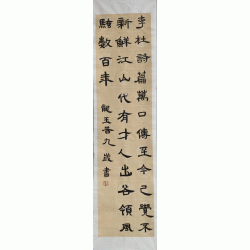 李杜詩篇萬口傳至今已覺不
新鮮江山代有才人出各領風
騷數百年
九歲書